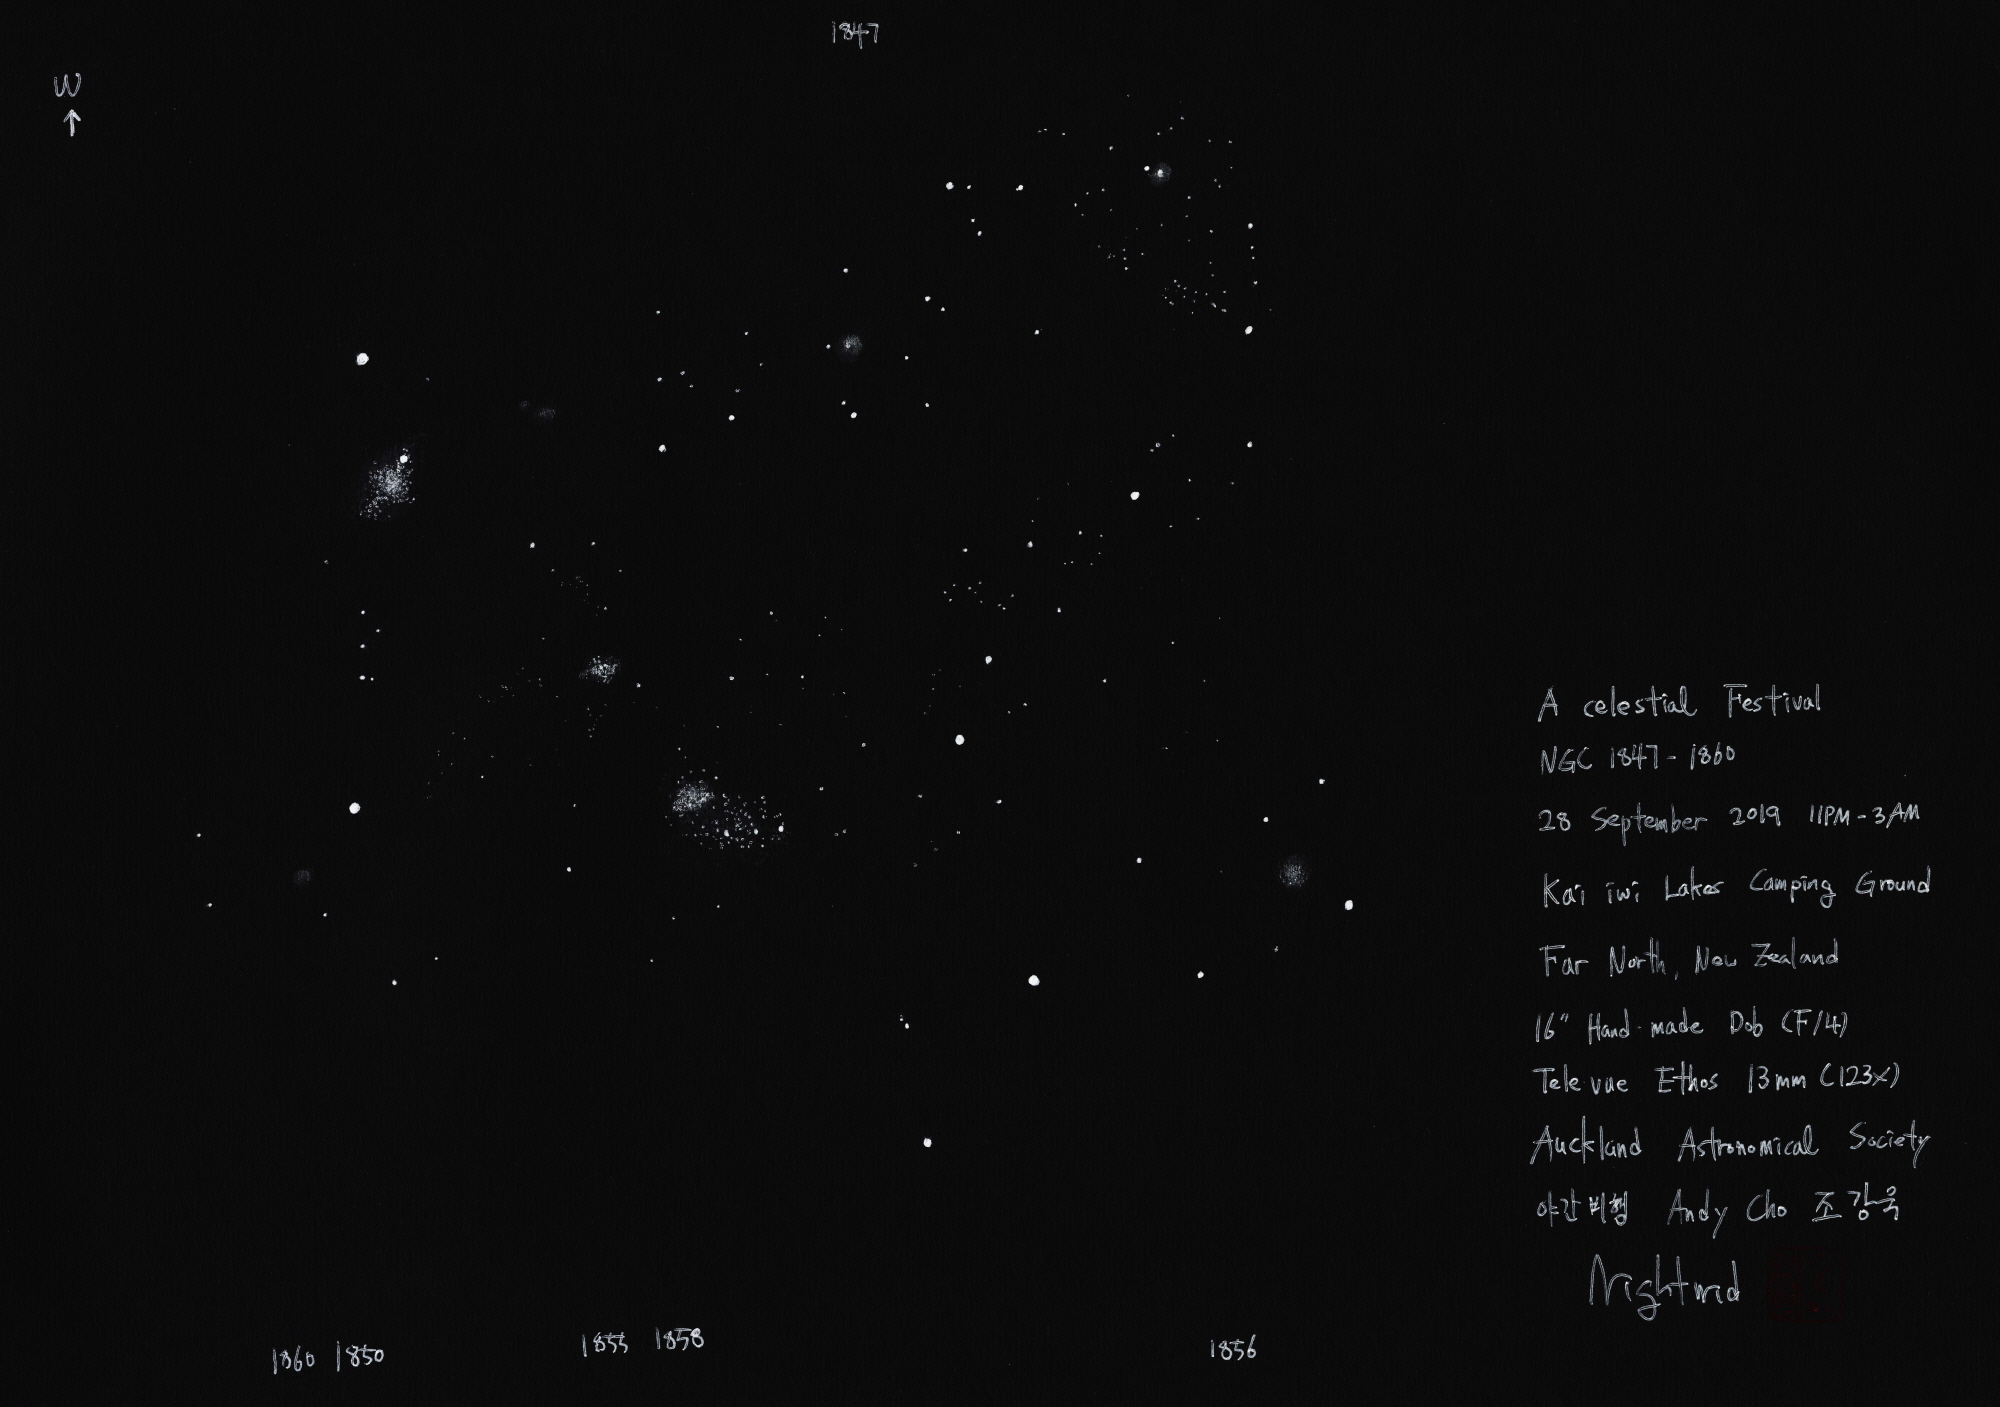 1847
W
A celestial Festival
NGC 1847-1860
28 September 2019 11PM-3AM
Kai iwi Lakes Camping Ground
Far North, New Zealand
16" Hand-made Dob (F/4)
Tele vue Ethos 13mm (123x)
Auckland Astronomical Society
야간비행 Andy Cho 조강욱
Nightwid
1860 1850 1855 1858 1856